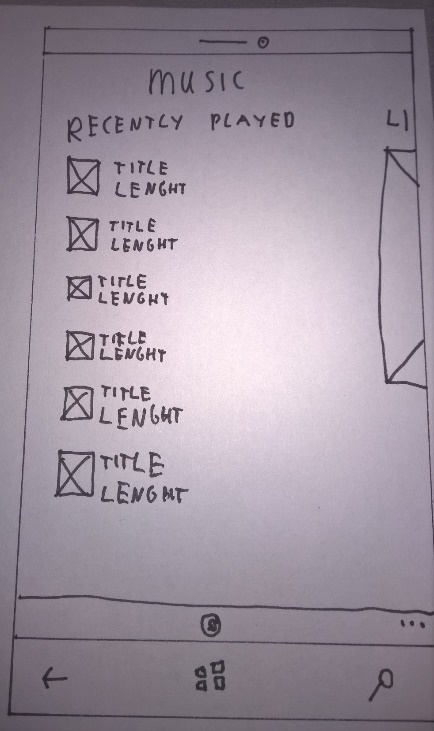 MUSIC
RECENTLY PLAYED
LI
TITLE
LENGHT
TITLE
LENGHT
TITLE
LENGHT
TITLE
LENGHT
TITLE
LENGHT
TITLE
LENGHT
...